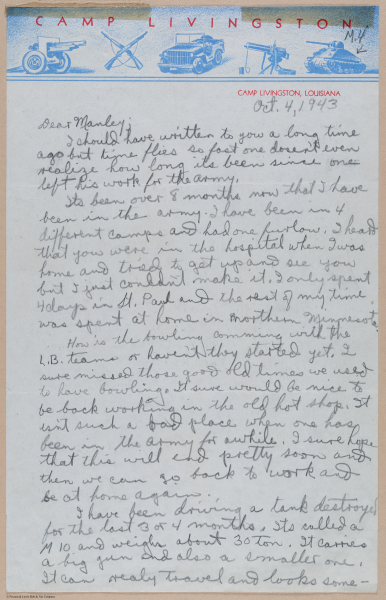 CAMP LIVINGSTON
M.4
CAMP LIVINGSTON, LOUISIANA
Oct. 4, 1943
Dear Manley:
I should have written to you a long time
ago but time flies so fast one doesnt even
realize how long its been since one
left his work for the army.
Its been over 8 months now that I have
been in the army. I have been in 4
different camps and had one furlow. I heard
that you were in the hospital when I was
home and tried to get up and see you
but I just couldn't make it. I only spent
4 days in St. Paul and the rest of my time
was spent at home in Northern Minnesota.
How is the bowling comming with the
L.B. teams or haven't they started yet. I
sure missed those good old times we used
to have bowling. It sure would be nice to
be back working in the old hot shop. It
isnt such a bad place when one has
been in the army for awhile. I sure hope
that this will end pretty soon and
then we can go back to work and
be at home again.
I have been driving a tank destroyer
for the last 3 or 4 months. Its called a
M 10 and weighs about 30 ton. It carries
a big gun and also a smaller one.
It can realy travel and looks some-